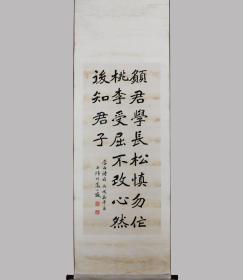 願君學長松慎勿作
桃李受屈不改心然
後知君子